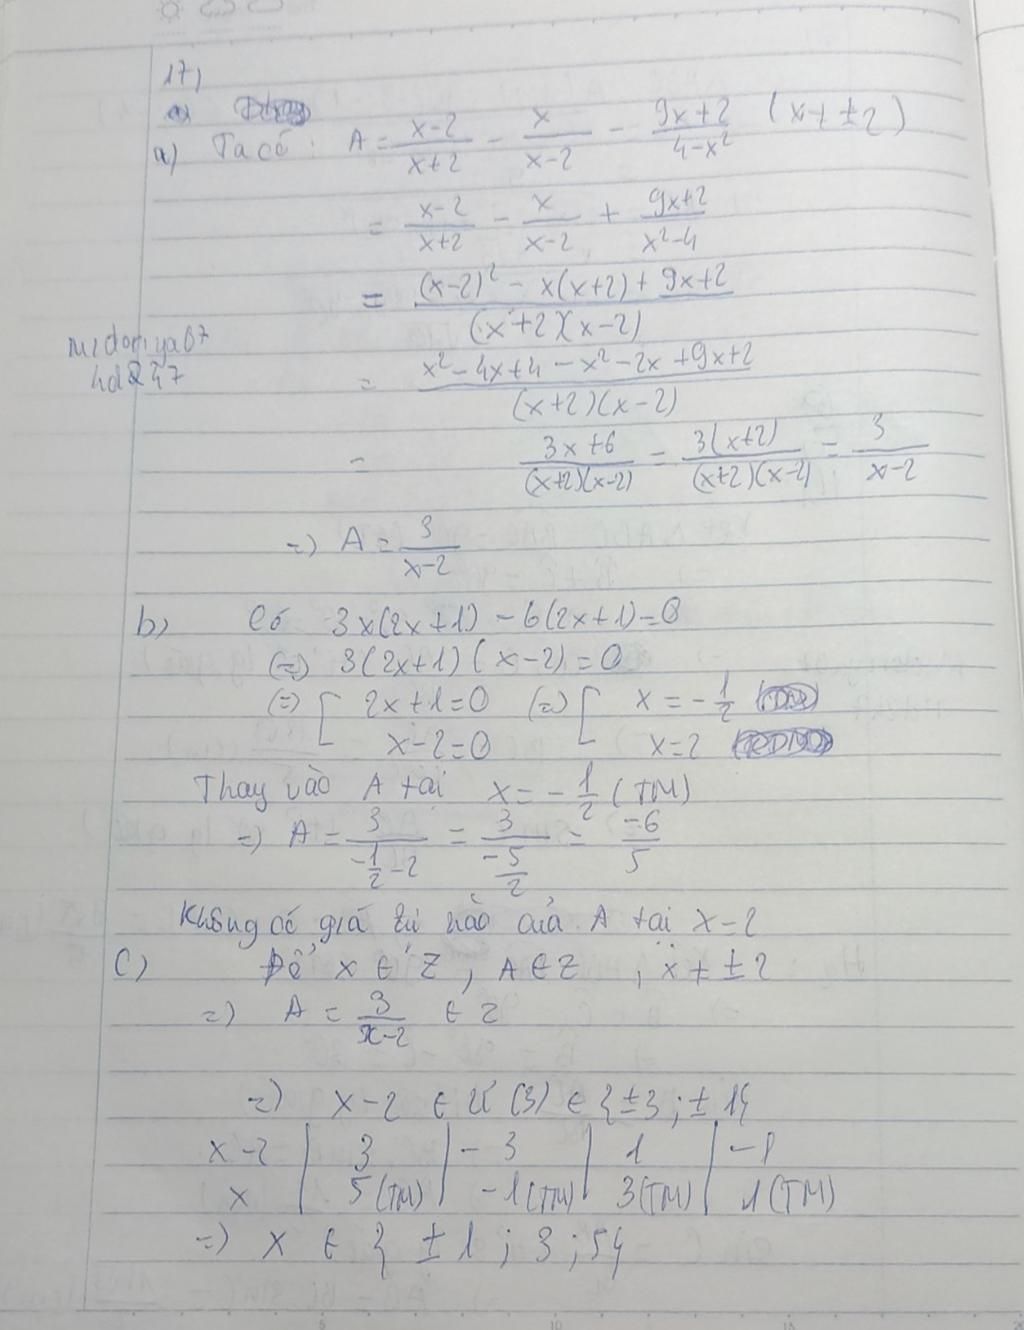 17)
a) Ta có: A = \frac{x-2}{x+2} - \frac{x}{x-2} - \frac{9x+2}{4-x²} (x ≠ ±2)
= \frac{x-2}{x+2} - \frac{x}{x-2} + \frac{9x+2}{x²-4}
= \frac{(x-2)² - x(x+2) + 9x+2}{(x+2)(x-2)}
midoriya67
hd247
= \frac{x² - 4x + 4 - x² - 2x + 9x + 2}{(x+2)(x-2)}
= \frac{3x+6}{(x+2)(x-2)} = \frac{3(x+2)}{(x+2)(x-2)} = \frac{3}{x-2}
=> A = \frac{3}{x-2}
b) Có 3x(2x+1) - 6(2x+1) = 0
(=) 3(2x+1)(x-2) = 0
(=) [ 2x+1=0 (=) [ x = -\frac{1}{2}
x-2=0 x=2
Thay vào A tại x = -\frac{1}{2} (TM)
=> A = \frac{3}{-\frac{1}{2}-2} = \frac{3}{-\frac{5}{2}} = \frac{-6}{5}
Không có giá trị nào của A tại x=2
c) Để x ∈ Z, A ∈ Z, x ≠ ±2
=> A = \frac{3}{x-2} ∈ Z
=> x-2 ∈ Ư(3) ∈ {±3; ±1}
x-2 | 3 | -3 | 1 | -1
x | 5(TM) | -1(TM) | 3(TM) | 1(TM)
=> x ∈ {±1; 3; 5}